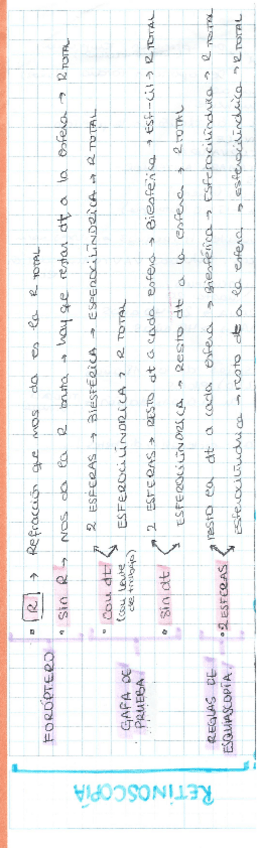 RETINOSCOPÍA
FORÓPTERO
• R → Refracción que nos da es la R TOTAL
• Sin R → Nos da la R bruta → hay que restar dt a la esfera → R TOTAL
GAFA DE PRUEBA
• Con dt (con lente de trabajo)
2 ESFERAS → BIESFÉRICA → ESFEROCILÍNDRICA → R TOTAL
ESFEROCILÍNDRICA → R TOTAL
• Sin dt
2 ESFERAS → RESTO dt a cada esfera → Biesférica → ESF-Cil → R TOTAL
ESFEROCILÍNDRICA → RESTO dt a la esfera → R TOTAL
REGLAS DE ESQUIASCOPÍA
• 2 ESFERAS
resto la dt a cada esfera → Biesférica → Esferocilíndrica → R TOTAL
esferocilíndrica → resto dt a la esfera → esferocilíndrica → R TOTAL